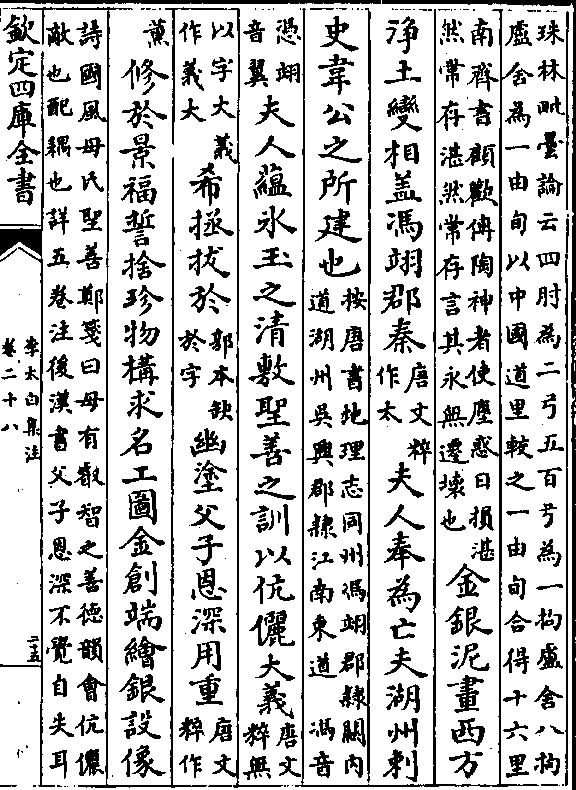 珠林毗曇論云四肘為二弓五百弓為一拘盧舍八拘
盧舍為一由旬以中國道里較之一由旬合得十六里
南齊書顧歡傳陶神者使塵惑日損湛
然常存湛然常存言其永無遷壞也
金銀泥畫西方
淨土變相盖馮翊郡秦
唐文粹
作太
夫人奉為亡夫湖州刺
史韋公之所建也
按唐書地理志同州馮翊郡隸關内
道湖州吳興郡隸江南東道 馮音
憑翊
音翼
夫人蘊氷玉之清敷聖善之訓以伉儷大義
唐文
粹無
以字大義
作義大
希拯拔於
郭本缺
於字
幽塗父子恩深用重
唐文
粹作
薫
修於景福誓捨珍物構求名工圖金創端繪銀設像
詩國風母氏聖善鄭箋曰母有叡智之善德韻會伉儷
敵也配耦也詳五卷注後漢書父子恩深不覺自失耳
欽定四庫全書
李太白集注
卷二十八
二五